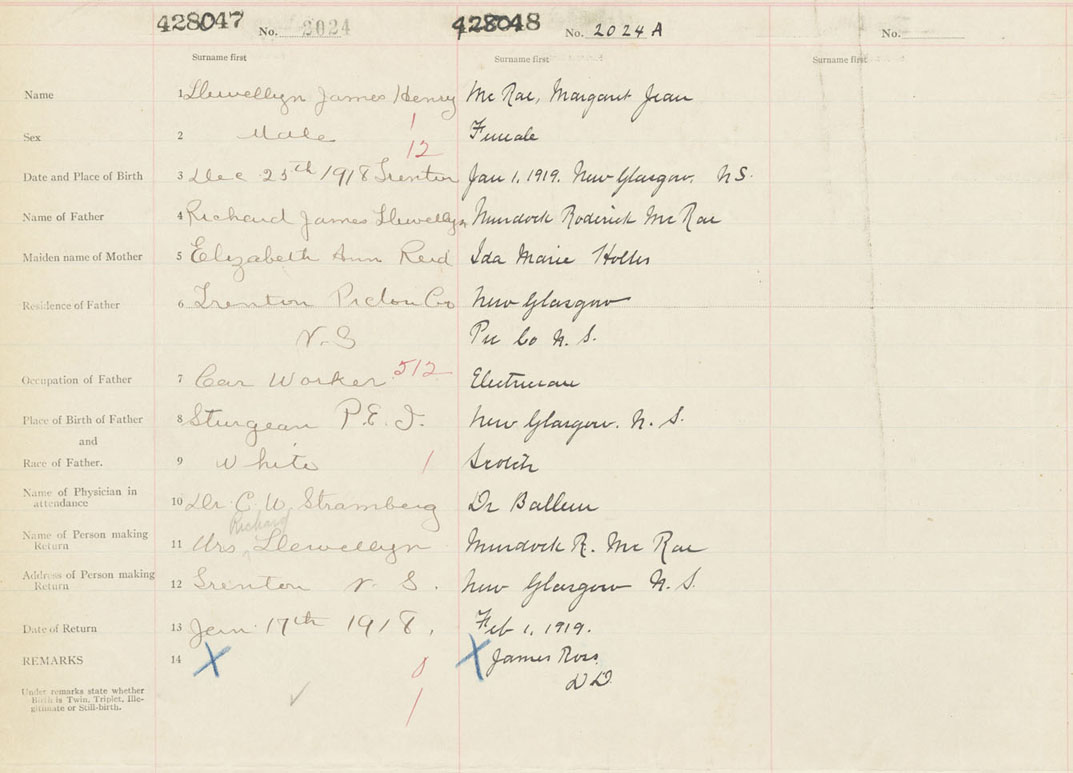 428047 No. 2024 428048 No. 2024 A No.
Surname first Surname first Surname first
Name 1 Llewellyn James Henry Mc Rae, Margaret Jean
1
Sex 2 Male Female
12
Date and Place of Birth 3 Dec 25th 1918 Trenton Jan 1, 1919. New Glasgow. N S.
Name of Father 4 Richard James Llewellyn Murdock Roderick Mc Rae
Maiden name of Mother 5 Elizabeth Ann Reid Ida Marie
Residence of Father 6 Trenton Pictou Co New Glasgow
N. S Pic Co N. S.
Occupation of Father 7 Car Worker 512 Electrician
Place of Birth of Father 8 Sturgean P. E. I. New Glasgow. N. S.
and
Race of Father. 9 White 1 Scotch
Name of Physician in
attendance 10 Dr. C. W. Stramberg Dr Ballem
Richard
Name of Person making
Return 11 Mrs Llewellyn Murdock R. Mc Rae
Address of Person making
Return 12 Trenton N. S. New Glasgow N. S.
Date of Return 13 Jan. 17th 1918, Feb 1, 1919.
REMARKS 14 X X James Ross
D D.
Under remarks state whether
Birth is Twin, Triplet, Ille-
gitimate or Still-birth.
1